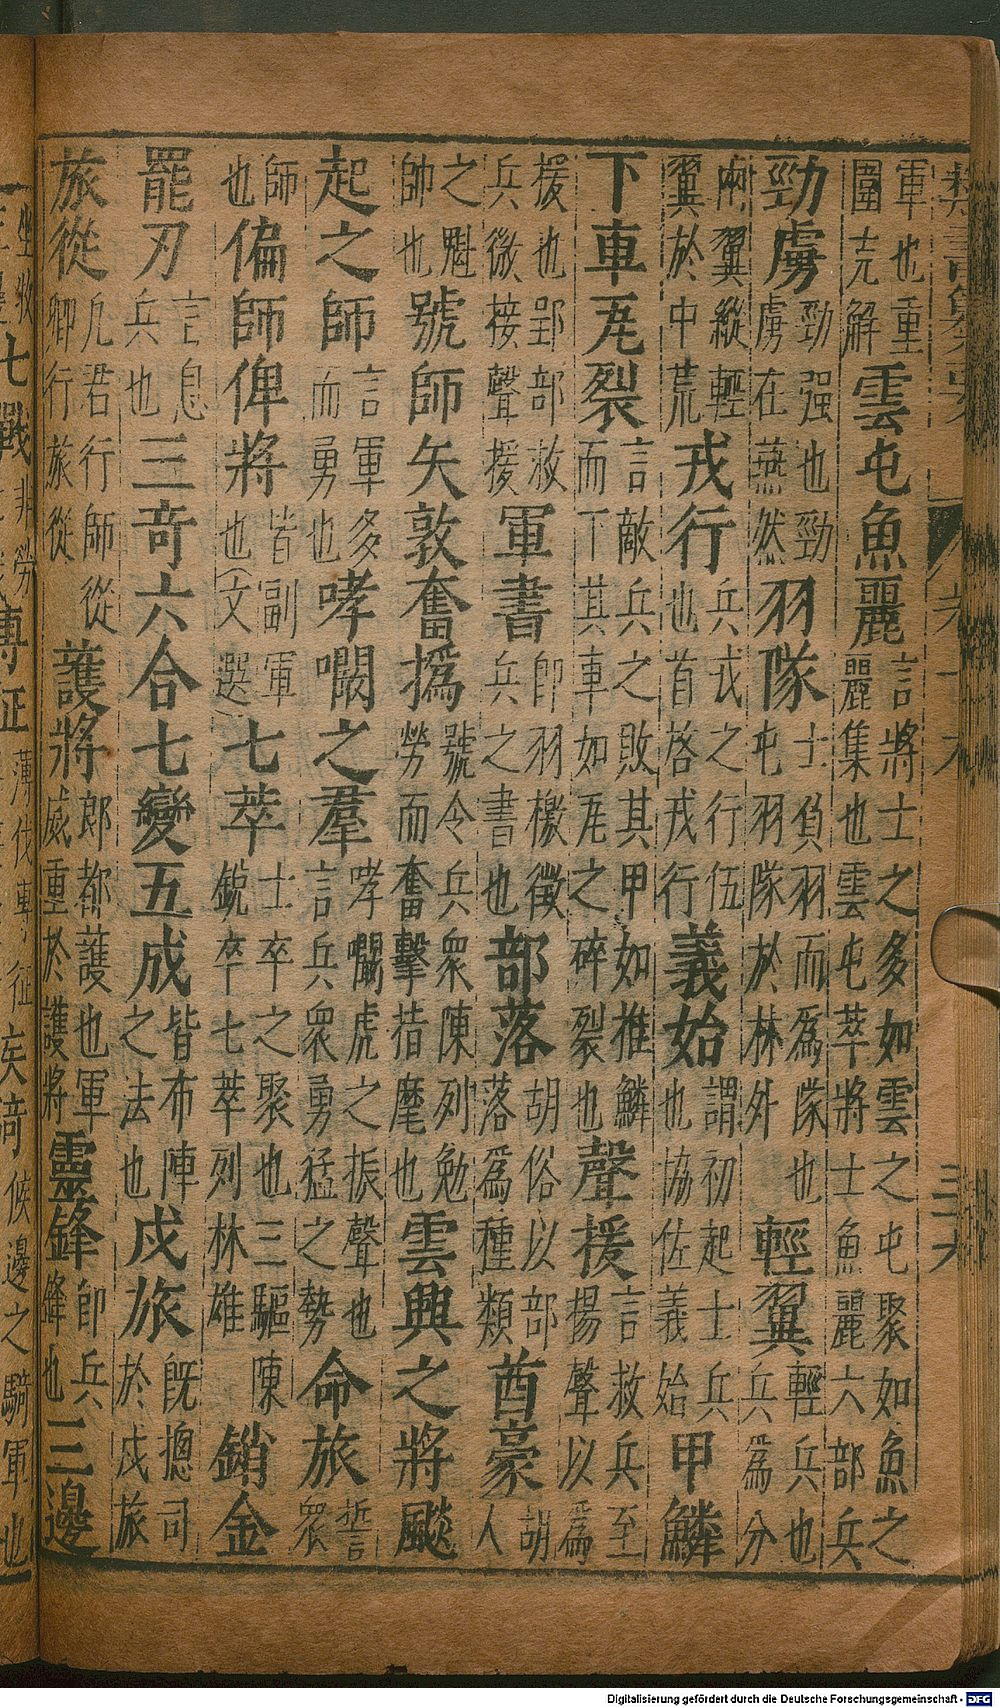 軍也重圍克解雲屯魚麗言將士之多如雲之屯聚如魚之麗集也雲屯萃將士魚麗六部兵
勁虜勁强也勁虜在燕然羽隊士負羽而為隊也屯羽隊於林外輕翼輕兵也兵為分
兩翼縱輕翼於中荒戎行兵戎之行伍也首啓戎行義始謂初起士兵也協佐義始甲鱗
下車瓦裂言敵兵之敗其甲如推鱗而下其車如瓦之碎裂也聲援言救兵至揚聲以為
援也郢部救兵徼接聲援軍書即羽檄徵兵之書也部落胡俗以部落為種類酋豪胡人
之魁帥也號師矢敦奮撝號令兵衆陳列勉勞而奮擊指麾也雲興之將飈
起之師言軍多而勇也哮闞之羣哮嚻虎之振聲也言兵衆勇猛之勢命旅誓衆
師也偏師俾將皆副軍也(文選)七萃士卒之聚也三驅陳銳卒七萃列林雄銷金
罷刃言息兵也三奇六合七變五成皆布陣之法也戍旅既摠司於戍旅
旅從凡君行師從卿行旅從護將郎都護也軍威重於護將靈鋒即兵鋒也三邊
Digitalisierung gefördert durch die Deutsche Forschungsgemeinschaft - DFG